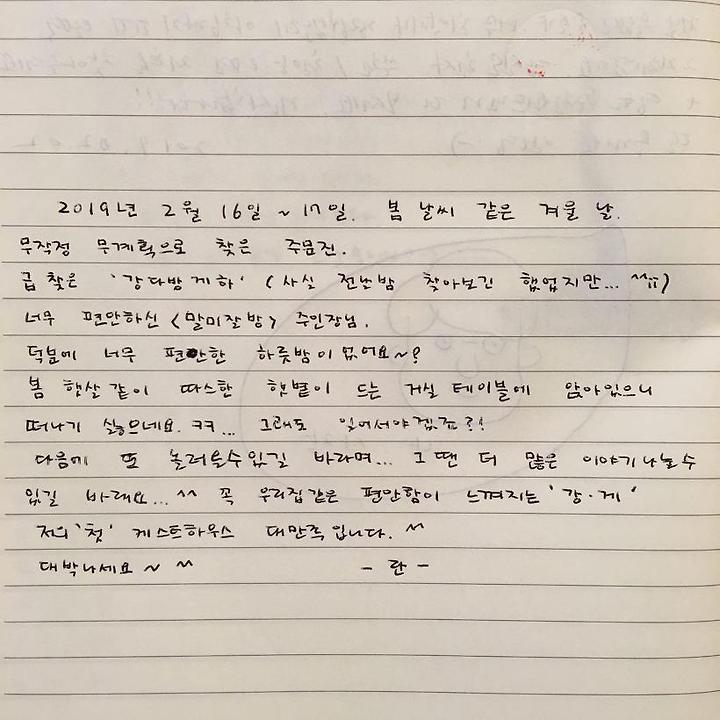 2019년 2월 16일 ~ 17일. 봄 날씨 같은 겨울 날.
무작정 무계획으로 찾은 주문진.
급 찾은 '강다방게하' (사실 전날밤 찾아보긴 했었지만... ^^;;)
너무 편안하신 <말미잘방> 주인장님.
덕분에 너무 편안한 하룻밤이었어요~?
봄 햇살같이 따스한 햇볕이 드는 거실 테이블에 앉아있으니
떠나기 싫으네요. ㅋㅋ... 그래도 일어서야겠죠?!
다음에 또 놀러올수있길 바라며... 그 땐 더 많은 이야기나눌수
있길 바래요... ^^ 꼭 우리집같은 편안함이 느껴지는 '강.게'
저의 '첫' 게스트하우스 대만족입니다. ^^
대박나세요 ~ ^^ - 란 -